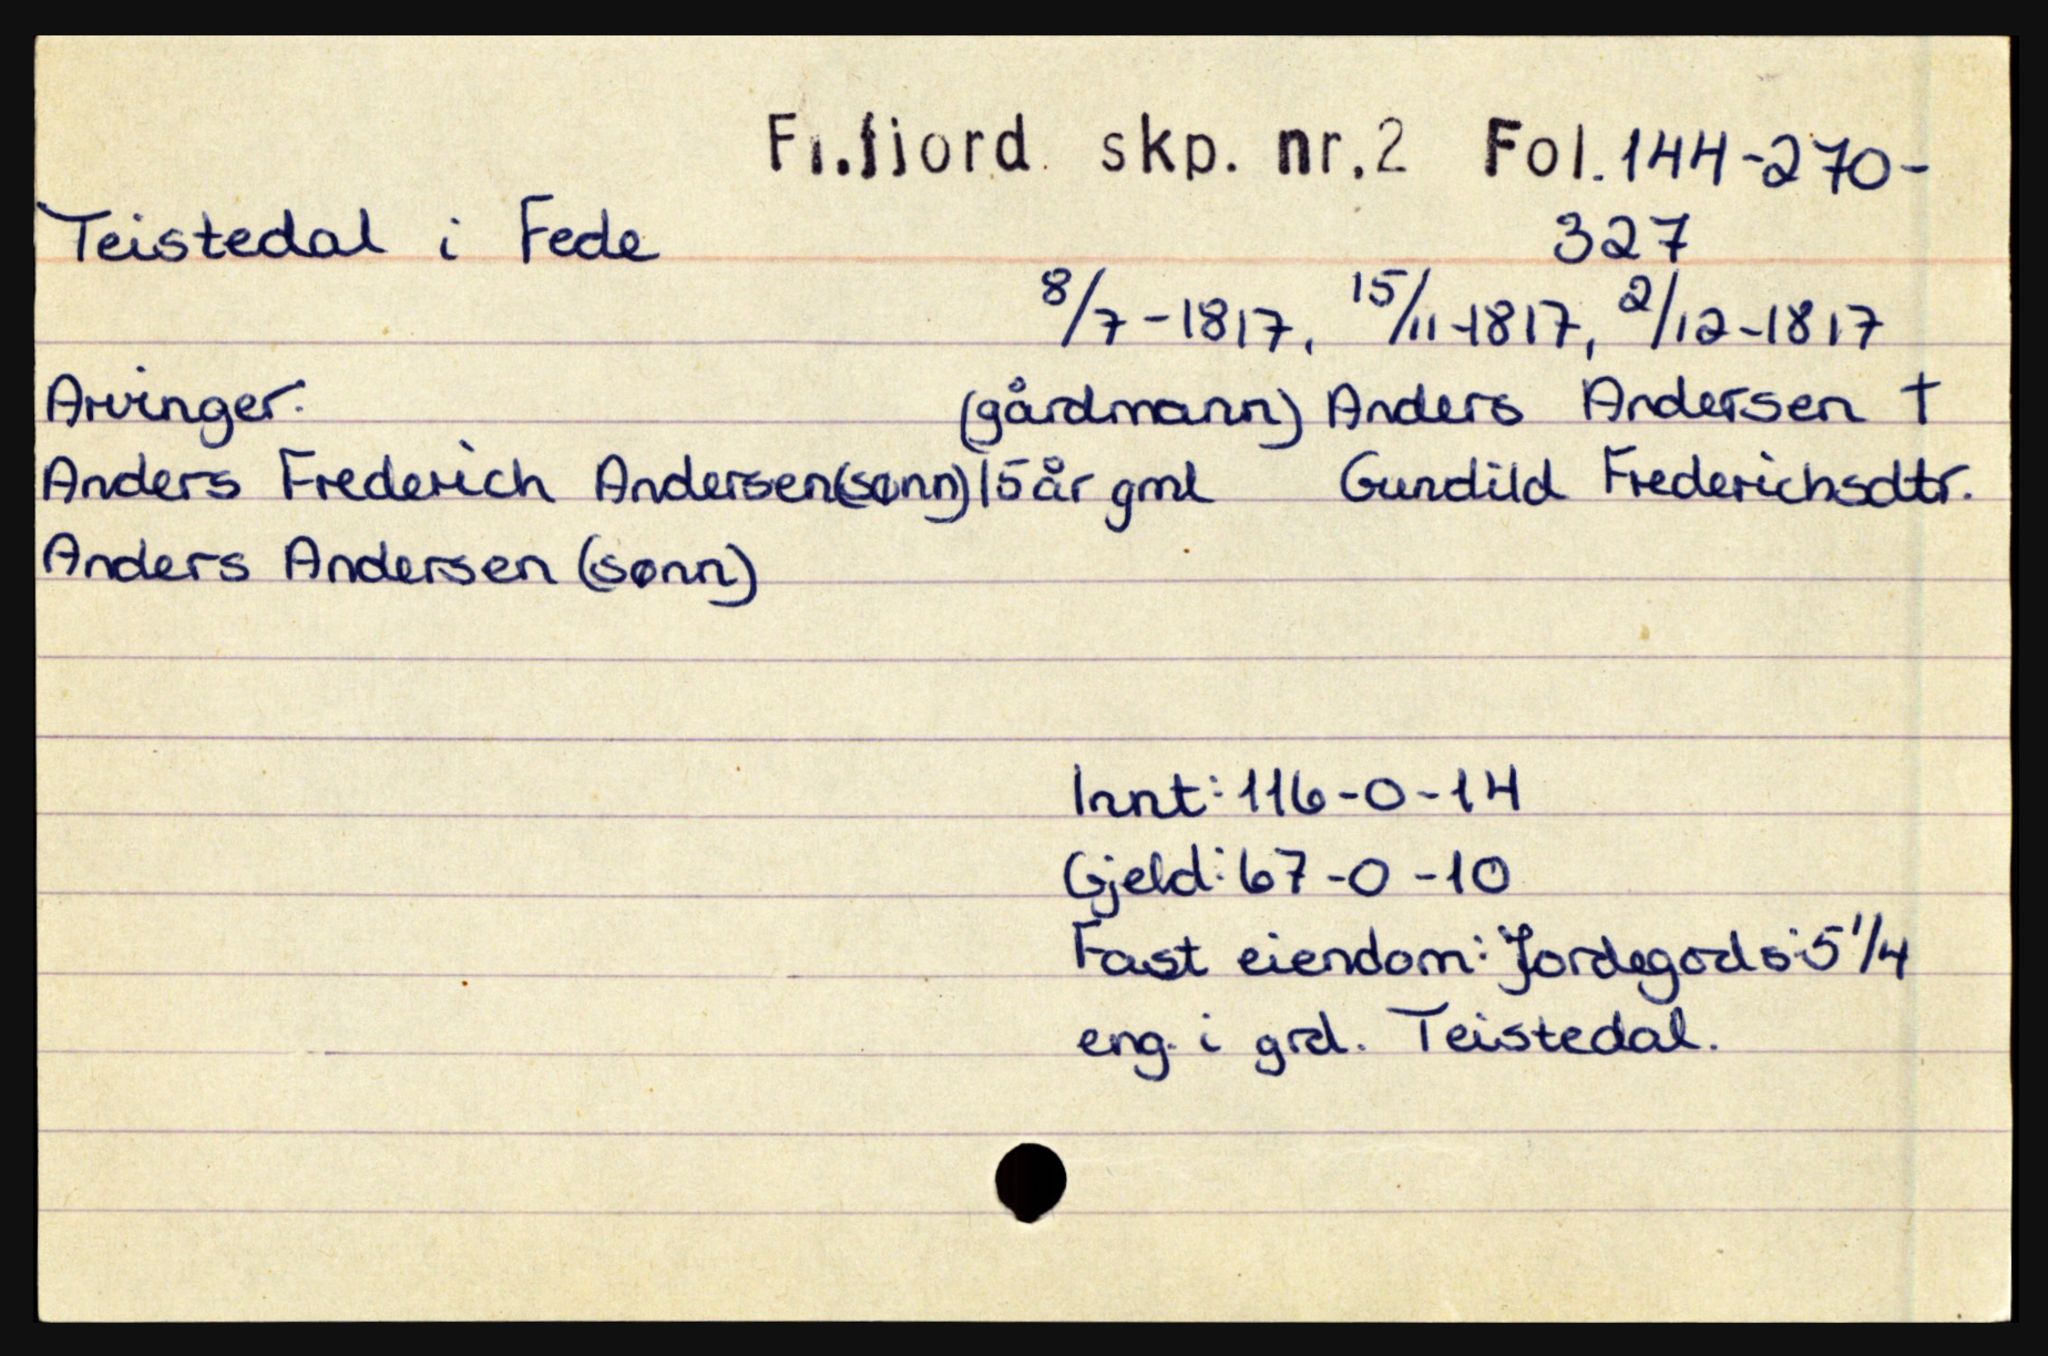 Fl.fjord skp. nr.2 Fol. 144-270-
Teistedal i Fede 327
8/7-1817, 15/11-1817, 2/12-1817
Arvinger: (gårdmann) Anders Andersen †
Anders Frederich Andersen (sønn) 15 år gml Gundild Frederichsdtr.
Anders Andersen (sønn)
Innt: 116-0-14
Gjeld: 67-0-10
Fast eiendom: Jordegods: 5 1/4
eng. i grd. Teistedal.